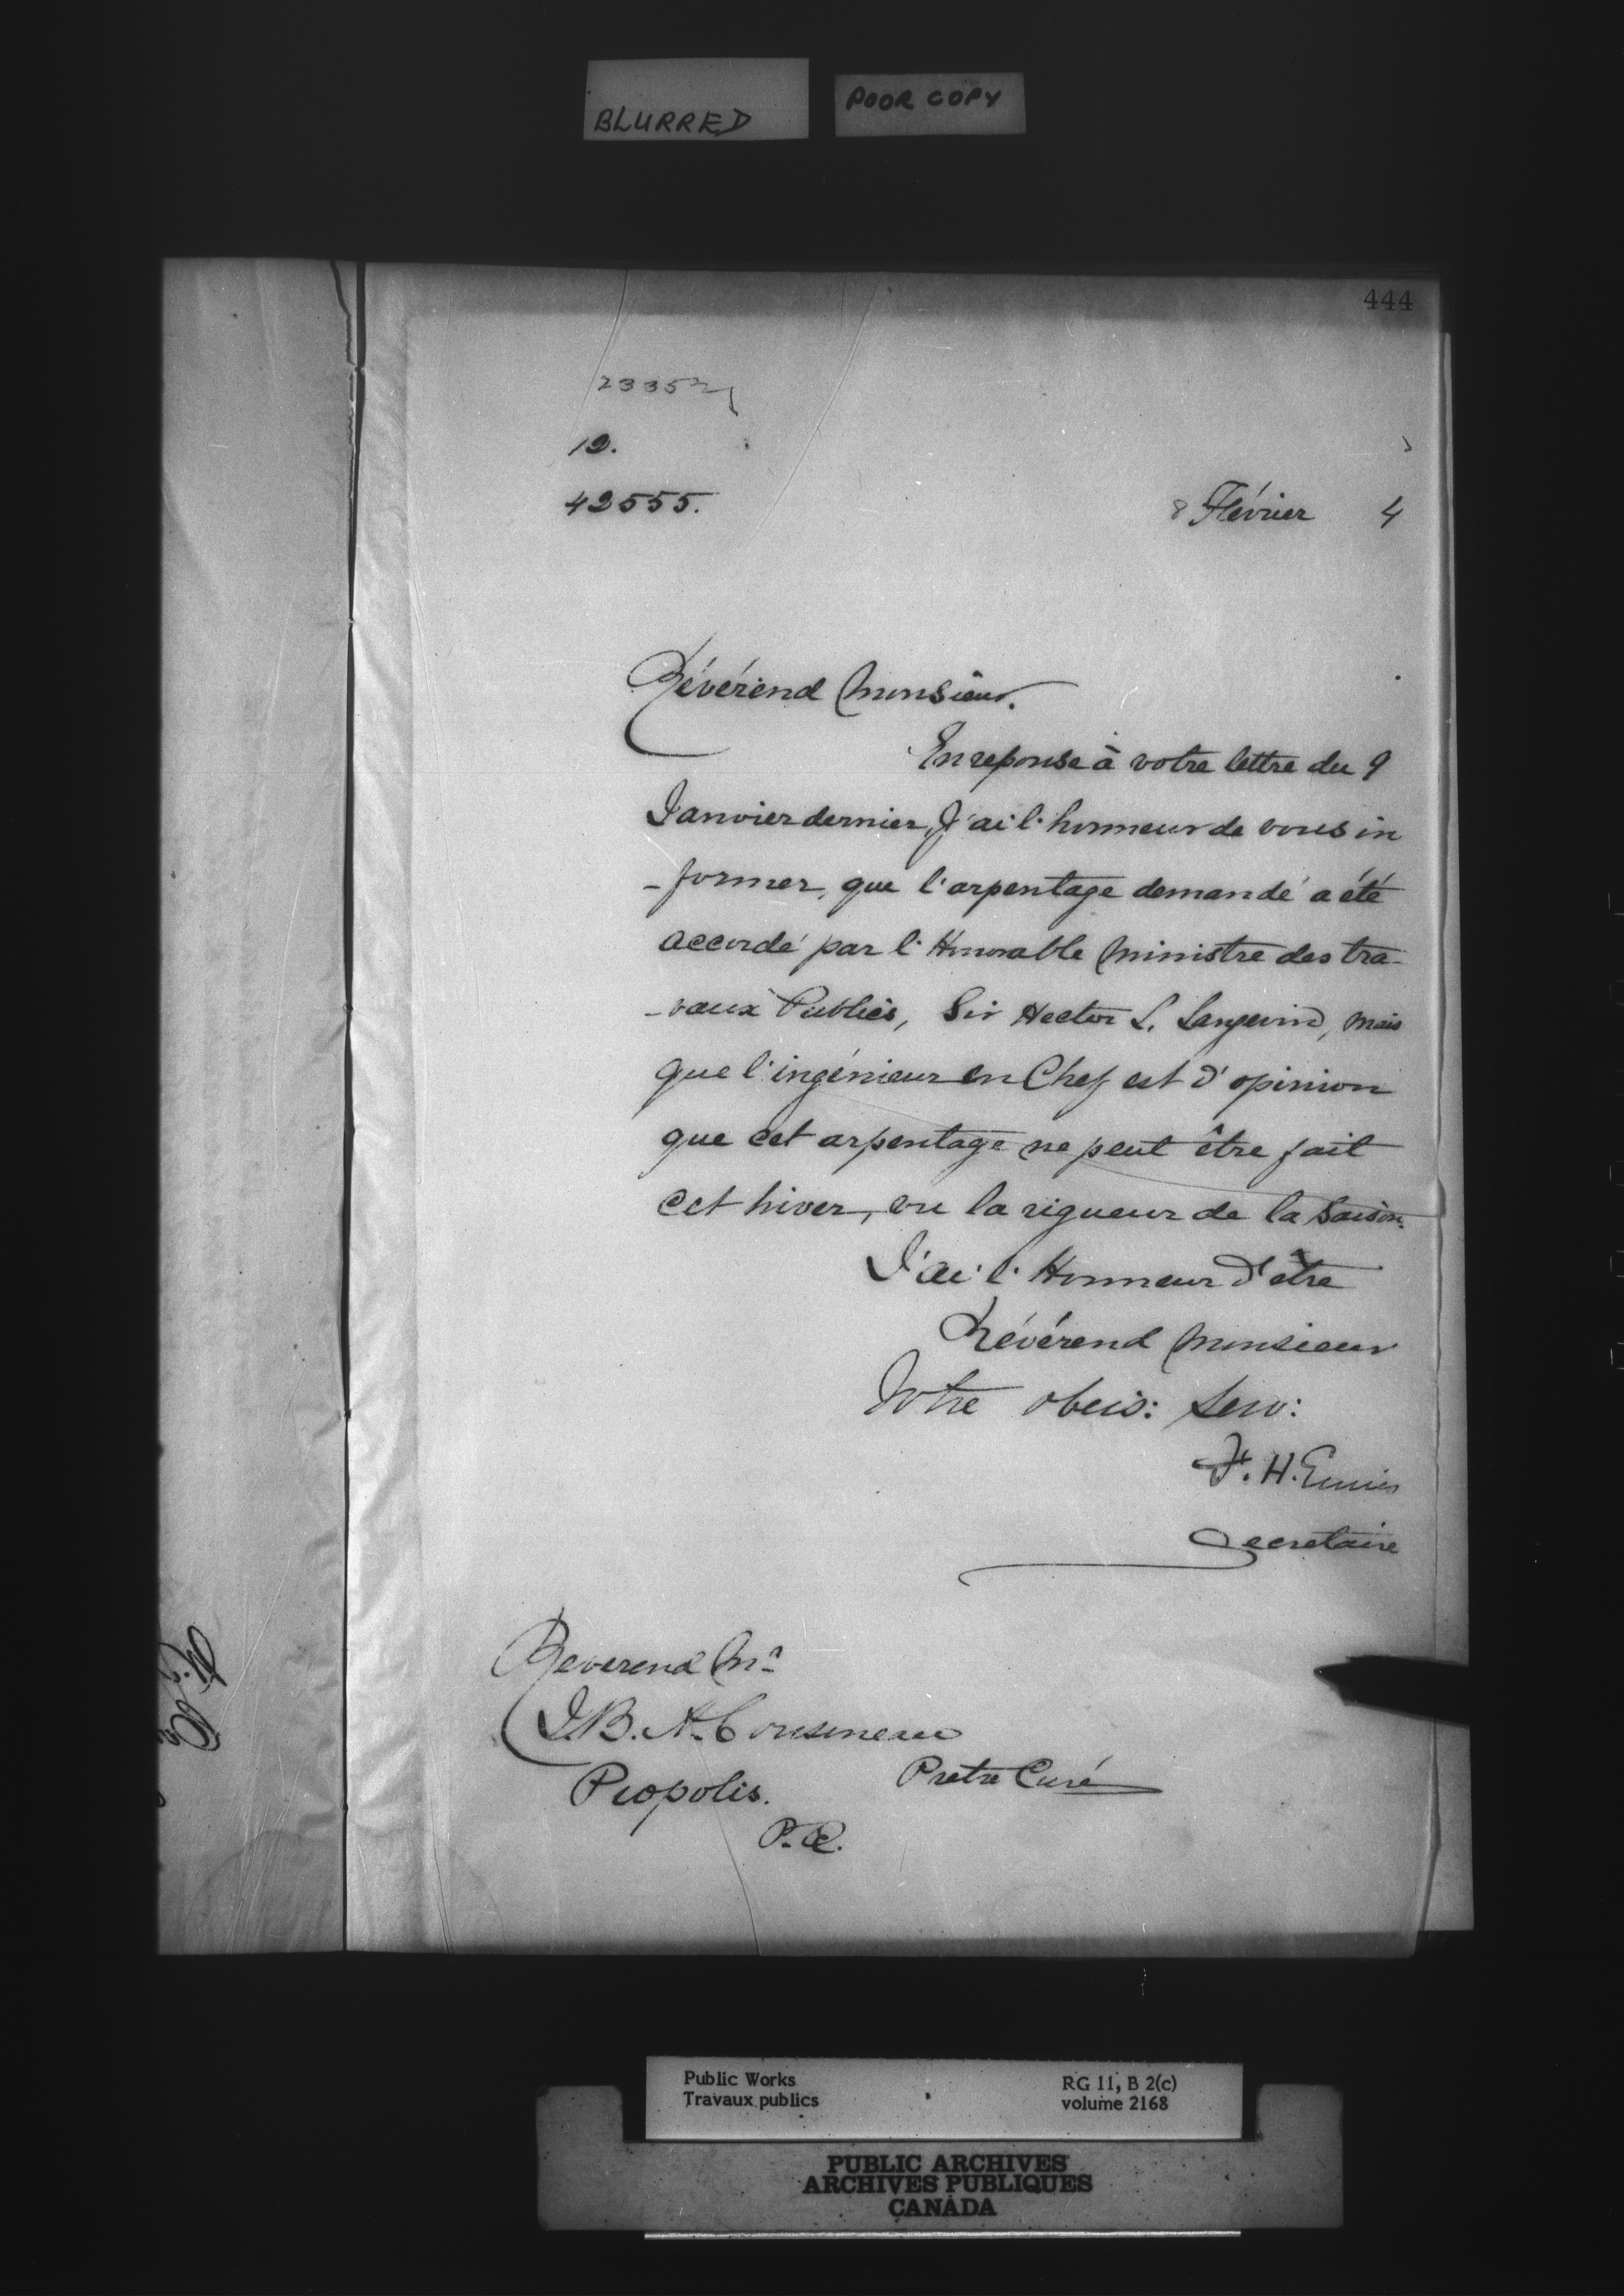 BLURRED
POOR COPY
444
23352
12.
42555.
8 Février 4
Révérend Monsieur.
En reponse à votre lettre du 9
Janvier dernier, J'ai l'honneur de vous in
-former, que l'arpentage demandé a été
accordé par l'Honorable Ministre des tra-
-vaux Publics, Sir Hector L. Langevin, mais
que l'ingénieur en Chef est d'opinion
que cet arpentage ne peut être fait
cet hiver, vu la rigueur de la Saison.
J'ai l'Honneur d'être
Révérend Monsieur
Votre obeis: serv:
F. H. Ennis
Secretaire
Reverend Mr
J.B. A. Cousineau
Pretre Curé
Piopolis.
P.Q.
Public Works
Travaux publics
RG 11, B 2(c)
volume 2168
PUBLIC ARCHIVES
ARCHIVES PUBLIQUES
CANADA